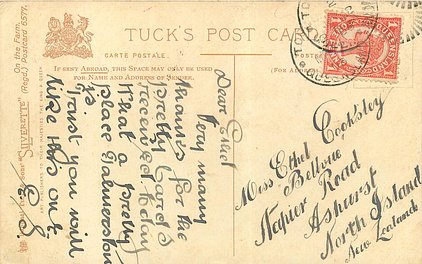 TUCK'S POST CARD
CARTE POSTALE.
IF SENT ABROAD, THIS SPACE MAY ONLY BE USED
FOR NAME AND ADDRESS OF SENDER.
(FOR ADDRESS
"On the Farm."
(Regd.) Postcard 6577.
"SILVERETTE"
Dear Ethel
Very many
thanks for the
pretty cards
received to day
What a pretty
place Palmerston
is
trust you will
like this one
Miss Ethel Cooksley
Bellvue
Napier Road
Ashurst
North Island
New Zealand